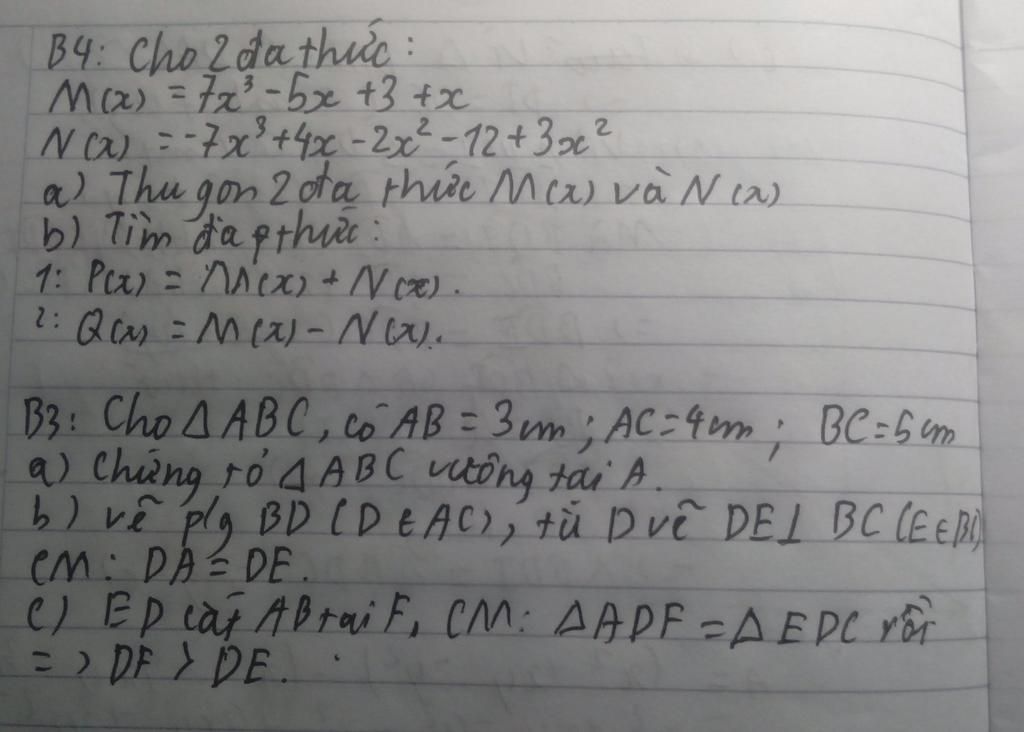 B4: Cho 2 đa thức:
M(x) = 7x³ - 5x + 3 + x
N(x) = -7x³ + 4x - 2x² - 12 + 3x²
a) Thu gọn 2 đa thức M(x) và N(x)
b) Tìm đa pthức:
1: P(x) = M(x) + N(x).
2: Q(x) = M(x) - N(x).
B3: Cho Δ ABC, có AB = 3cm; AC = 4cm; BC = 5cm
a) Chứng tỏ Δ ABC vuông tại A.
b) vẽ p/g BD (D ∈ AC), từ D vẽ DE ⊥ BC (E ∈ BC)
CM: DA = DE.
c) ED cắt AB tại F, CM: Δ ADF = Δ EDC rồi
=> DF > DE.